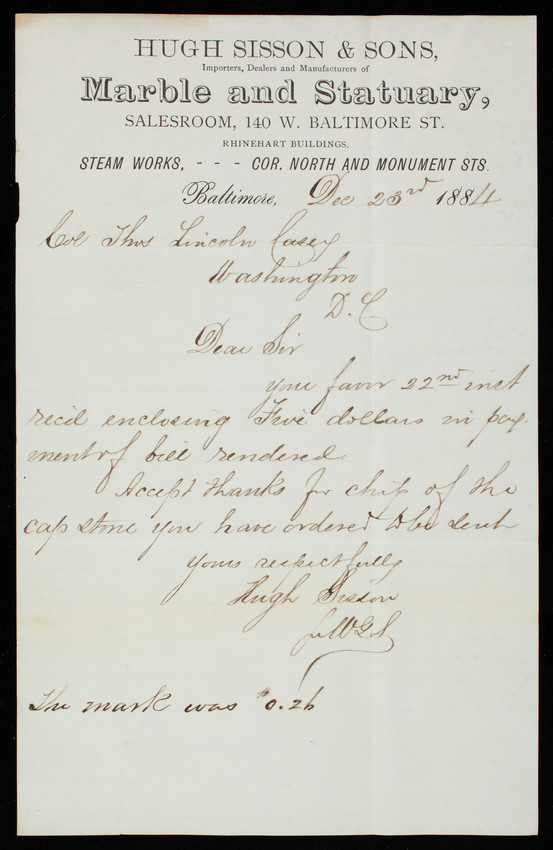 HUGH SISSON & SONS,
Importers, Dealers and Manufacturers of
Marble and Statuary,
SALESROOM, 140 W. BALTIMORE ST.
RHINEHART BUILDINGS.
STEAM WORKS, - - - COR. NORTH AND MONUMENT STS.
Baltimore, Dec 23rd 1884
Col Thos Lincoln Casey
Washington
D.C
Dear Sir
your favor 22nd inst
recd enclosing Five dollars in pay-
ment of bill rendered.
Accept thanks for chip of the
cap stone you have ordered to be sent
yours respectfully
Hugh Sisson
The mark was